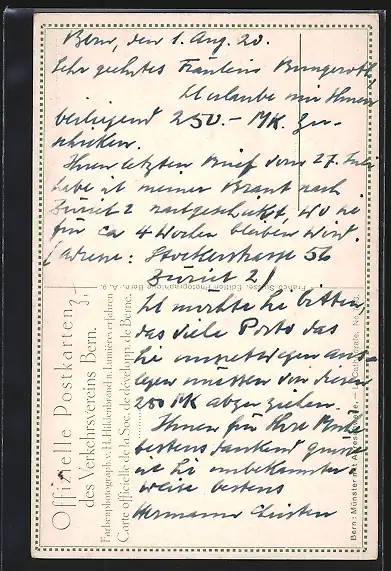 Bern, den 1. Aug. 20.
Sehr geehrtes Fräulein Bungeroth,
Ich erlaube mir Ihnen
beiliegend 250.- MK. zu-
schicken.
Ihren letzten Brief vom 27. Juli
habe ich meiner Braut nach
Zürich 2 nachgeschickt, wo sie
für ca 4 Wochen bleiben wird.
(Adresse: Stockerstrasse 56
Zürich 2)
Ich möchte Sie bitten,
das viele Porto das
Sie unsretwegen aus-
legen müssen von diesen
250 MK abzuziehen.
Ihnen für Ihre Mühe
bestens dankend grüsst
Sie unbekannter-
weise bestens
Hermann
Offizielle Postkarten
des Verkehrsvereins Bern.
Farbenphotograph. v. H. Hildenbrand n. Lumières erfahren
Carte officielle de la Soc. de développ. de Berne.
Franco-Suisse, Edition Photographique Bern. A. 9.
Bern: Münster mit